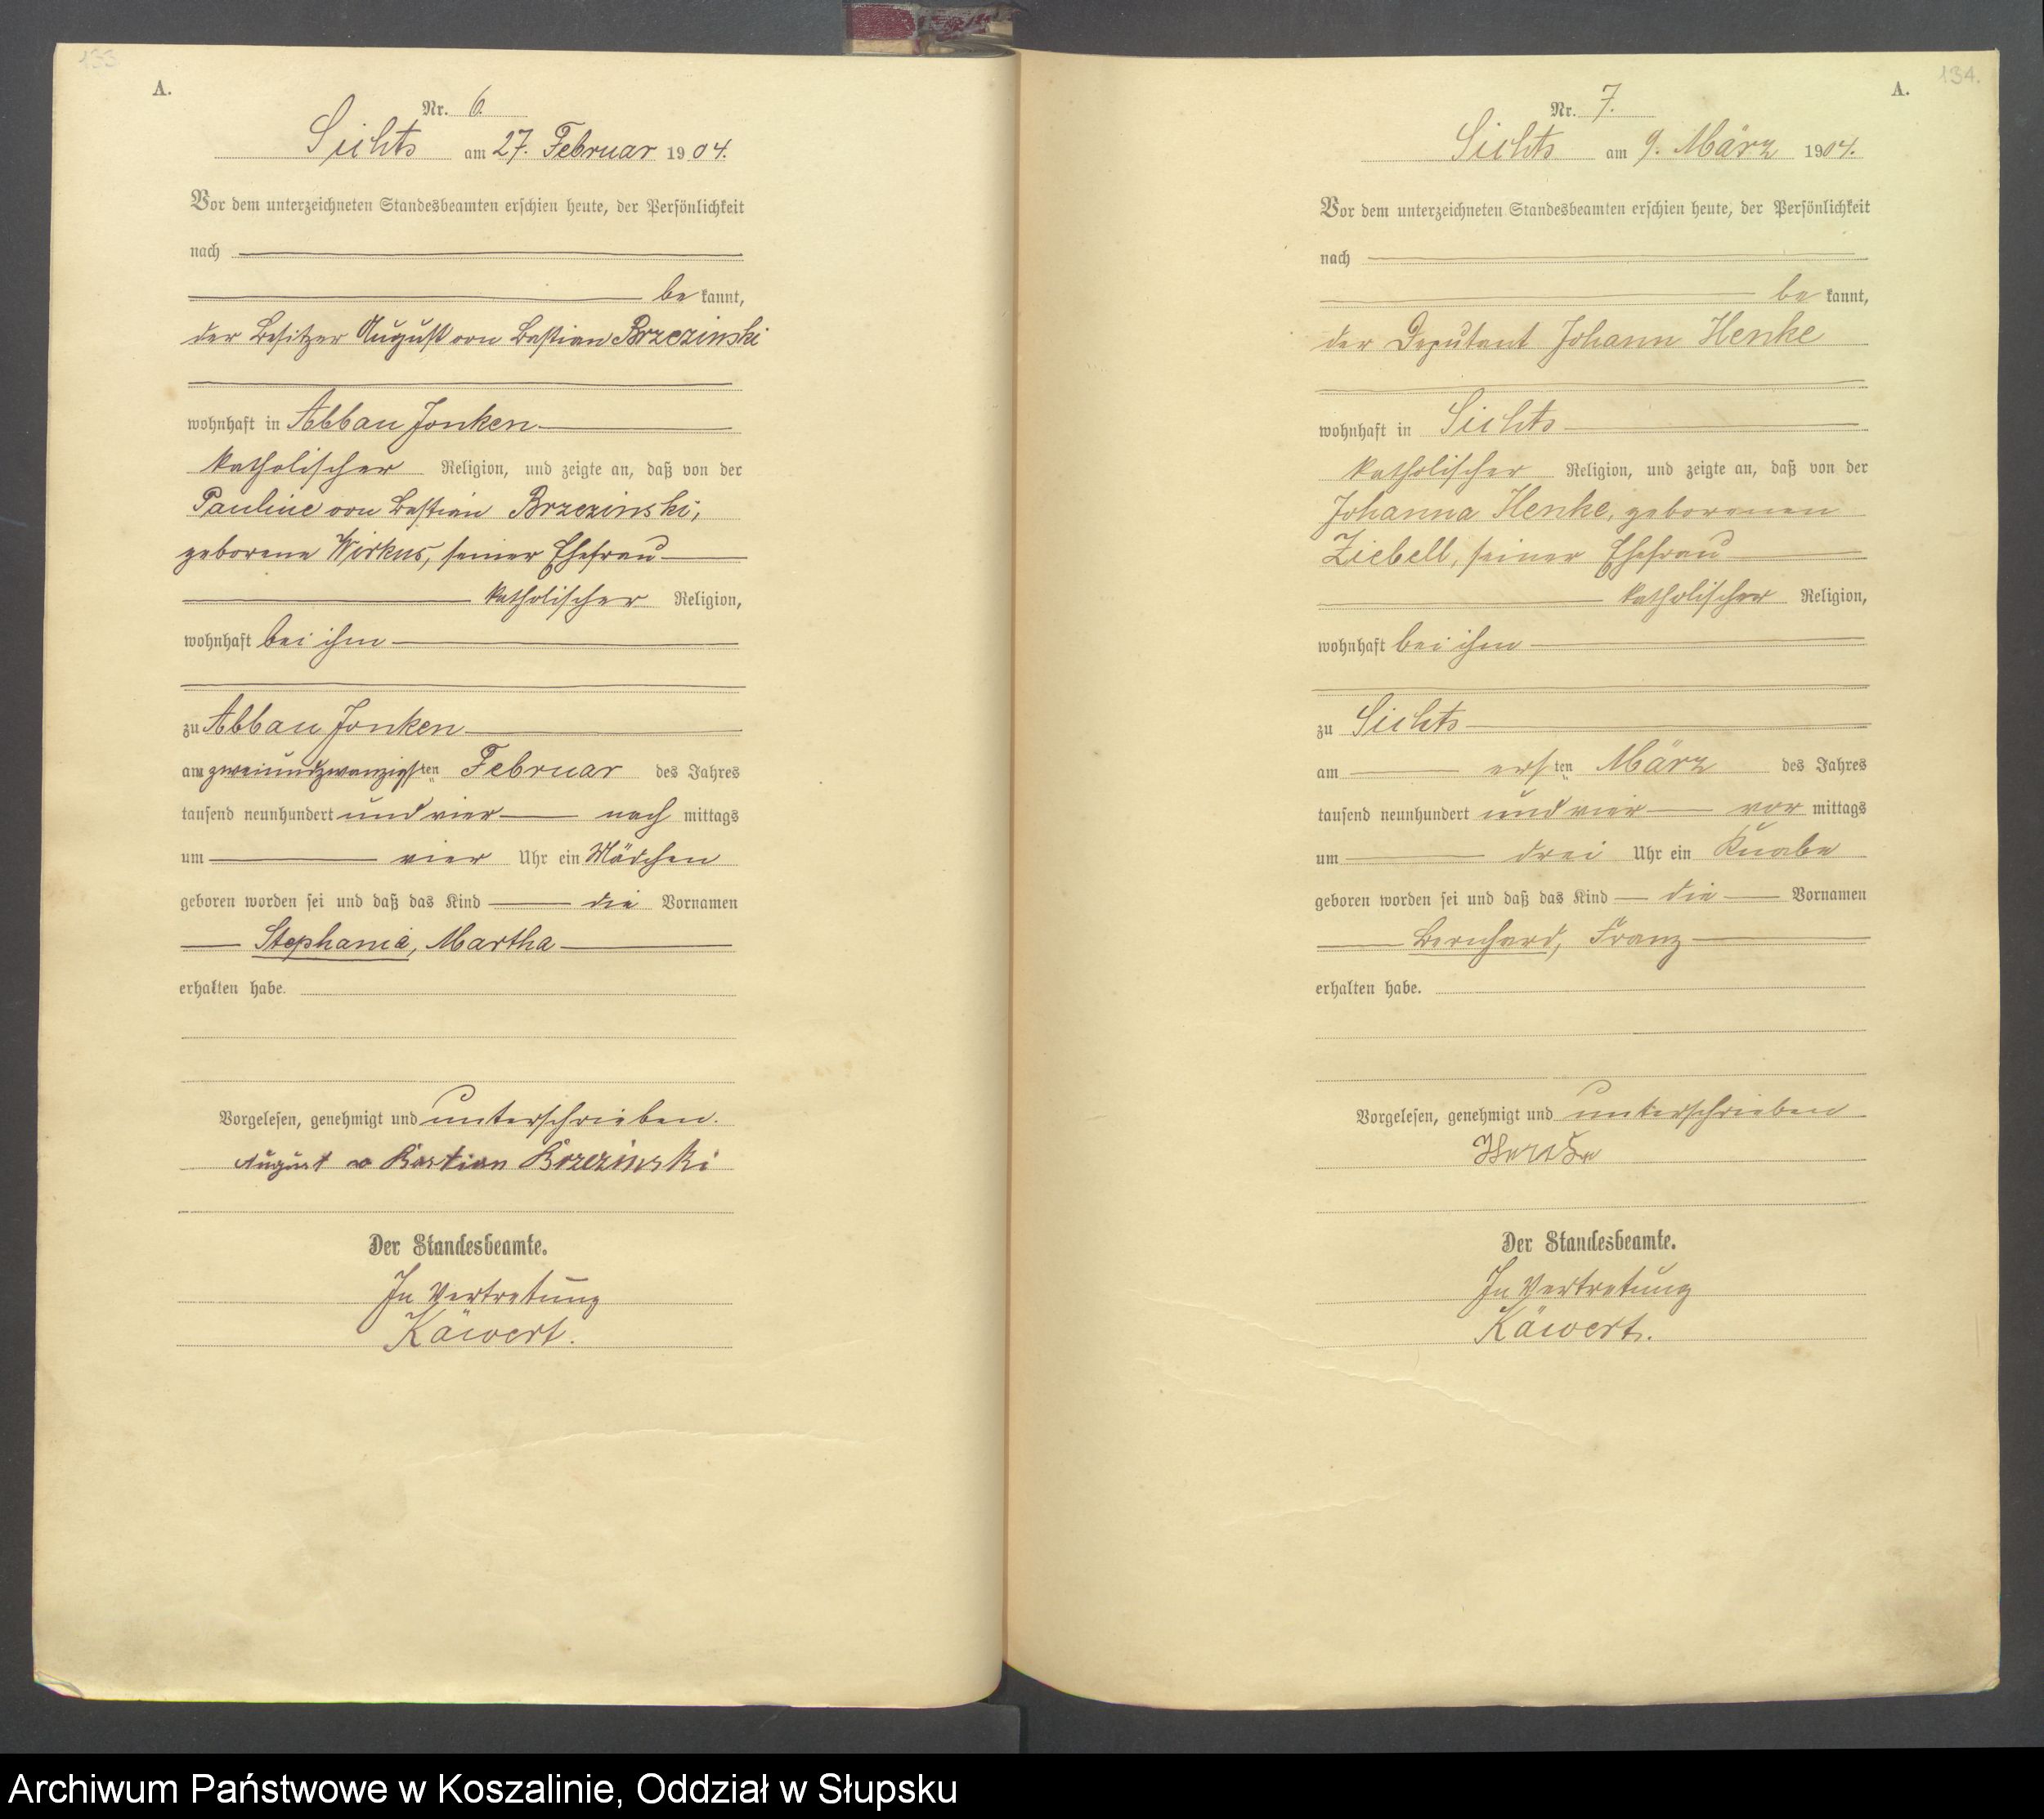 133
A.
Nr. 6.
Sichts am 27. Februar 1904.
Vor dem unterzeichneten Standesbeamten erschien heute, der Persönlichkeit
nach
bekannt,
der Besitzer August von Bastian Brzezinski
wohnhaft in Abbau Jonken
katholischer Religion, und zeigte an, daß von der
Pauline von Bastian Brzezinski,
geborene Wirkus, seiner Ehefrau
katholischer Religion,
wohnhaft bei ihm
zu Abbau Jonken
am zweiundzwanzigsten Februar des Jahres
tausend neunhundert und vier nachmittags
um vier Uhr ein Mädchen
geboren worden sei und daß das Kind die Vornamen
Stephanie, Martha
erhalten habe.
Vorgelesen, genehmigt und unterschrieben.
August v Bastian Brzezinski
Der Standesbeamte.
In Vertretung
Käwert.
134.
A.
Nr. 7.
Sichts am 9. März 1904.
Vor dem unterzeichneten Standesbeamten erschien heute, der Persönlichkeit
nach
bekannt,
der Deputant Johann Henke
wohnhaft in Sichts
katholischer Religion, und zeigte an, daß von der
Johanna Henke, geborenen
Ziebell, seiner Ehefrau
katholischer Religion,
wohnhaft bei ihm
zu Sichts
am ersten März des Jahres
tausend neunhundert und vier vormittags
um drei Uhr ein Knabe
geboren worden sei und daß das Kind die Vornamen
Bernhard, Franz
erhalten habe.
Vorgelesen, genehmigt und unterschrieben
Henke
Der Standesbeamte.
In Vertretung
Käwert.
Archiwum Państwowe w Koszalinie, Oddział w Słupsku